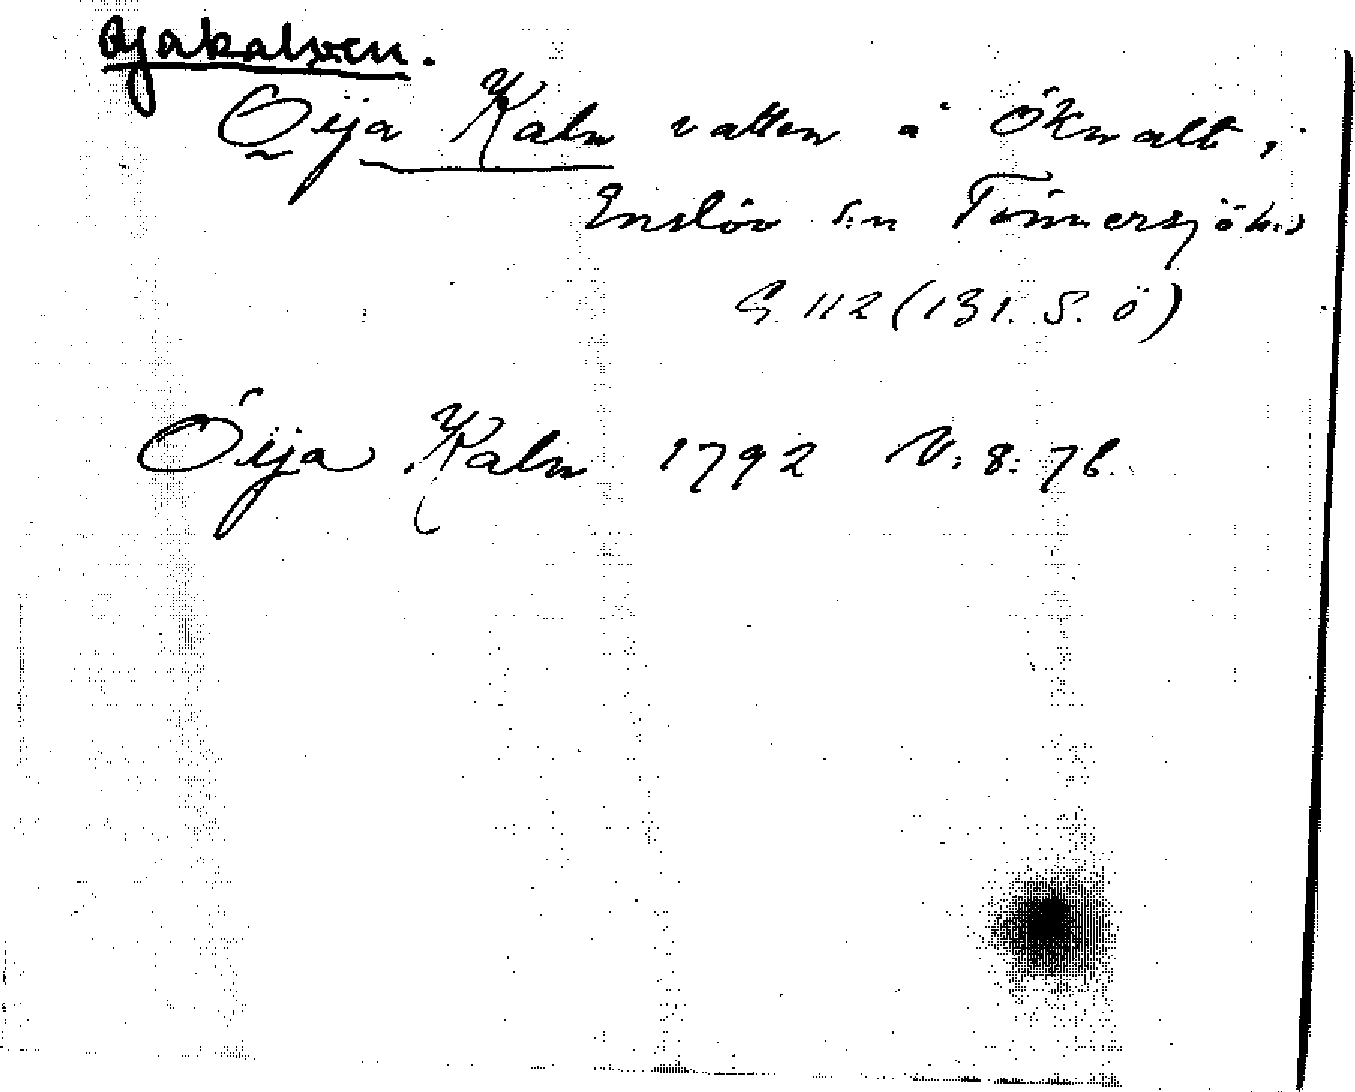 Öjakalven.
Öija Kalv vatten å Öknalt,
Enslöv s:n Tönnersjö h:d
G 112 (131. S. Ö)
Öija Kalv 1792 N: 8: 76.